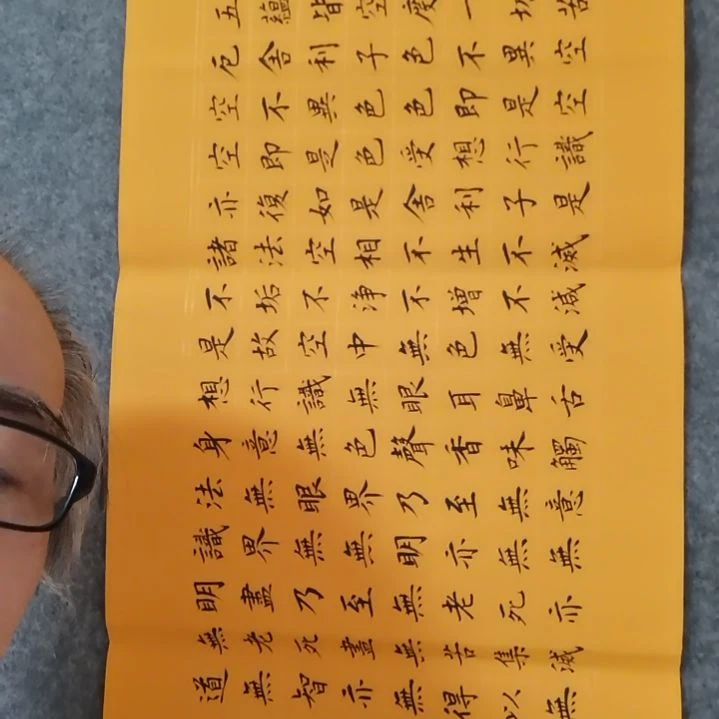 五蘊皆空度一切苦
厄舍利子色不異空
空不異色色即是空
空即是色受想行識
亦復如是舍利子是
諸法空相不生不滅
不垢不淨不增不減
是故空中無色無受
想行識無眼耳鼻舌
身意無色聲香味觸
法無眼界乃至無意
識界無無明亦無無
明盡乃至無老死亦
無老死盡無苦集滅
道無智亦無得以無